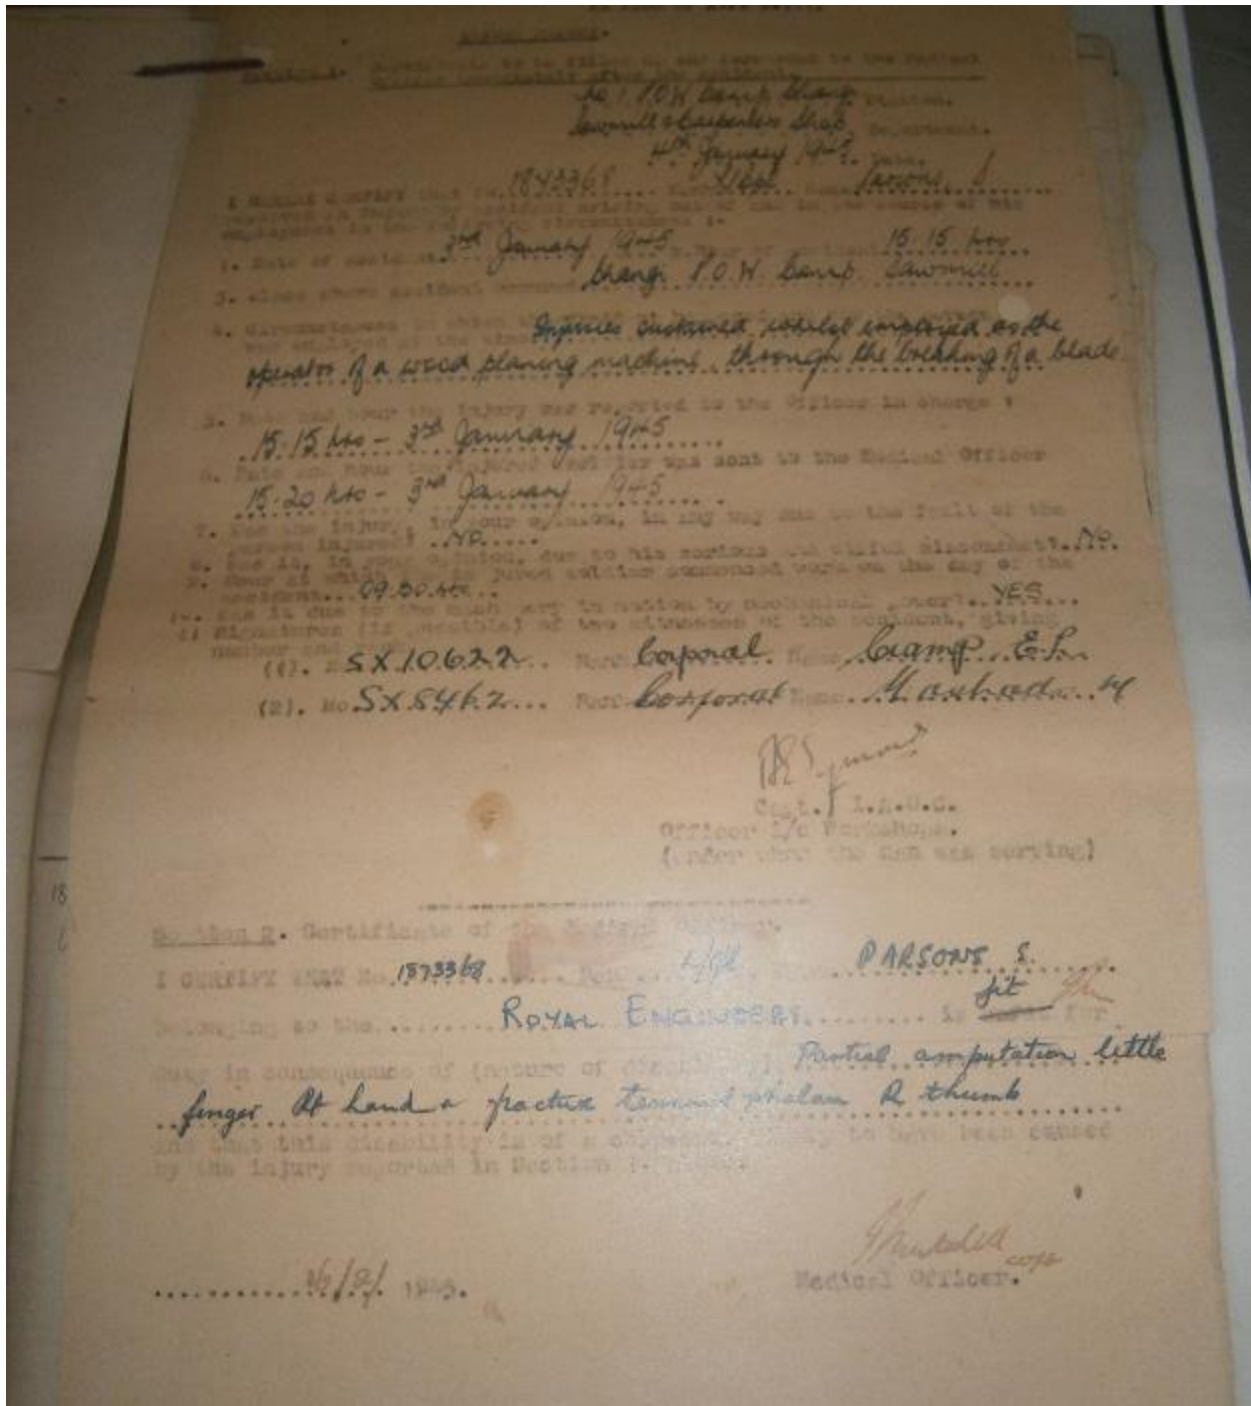 Section 1. to be filled up and forwarded to the Medical
Officer immediately after the accident.
No 1. P.O.W. Camp Changi Station.
Sawmill & Carpenters Shop. Department.
4th January 1945. Date.
I HEREBY CERTIFY that No. 1873368 Name Parsons S
received an injury by accident arising out of and in the course of his
employment in the following circumstances :-
1. Date of accident. 3rd January 1945 2. Hour of accident 15.15 hrs
3. Place where accident occurred Changi P.O.W. Camp. Sawmill
4. Circumstances in which Injuries sustained whilst employed as the
was employed at the time
operator of a wood planing machine, through the breaking of a blade
5. Date and hour the injury was reported to the Officer in charge :
15.15 hrs - 3rd January 1945
6. Date and hour the injured soldier was sent to the Medical Officer
15.20 hrs - 3rd January 1945
7. Was the injury, in your opinion, in any way due to the fault of the
person injured? No
8. Was it, in your opinion, due to his serious and wilful misconduct? No.
9. Hour at which injured soldier commenced work on the day of the
accident 09.30 hrs
10. Was it due to the machinery in motion by mechanical power? YES
11 Signatures (if possible) of two witnesses of the accident, giving
number and
(1). No. SX10622 Rank Corporal. Name Cramp E.L.
(2). No. SX8462 Rank Corporal Name
Capt.
Officer i/c Workshops.
(under whom the man was serving)
Section 2. Certificate of the Medical Officer.
I CERTIFY THAT No. 1873368 PARSONS S.
fit
belonging to the ROYAL ENGINEERS is for
duty in consequence of (nature of disability) Partial amputation little
finger Rt hand & fracture terminal phalanx R thumb
and that this disability is of a to have been caused
by the injury reported in Section 1.
1945.
Medical Officer.